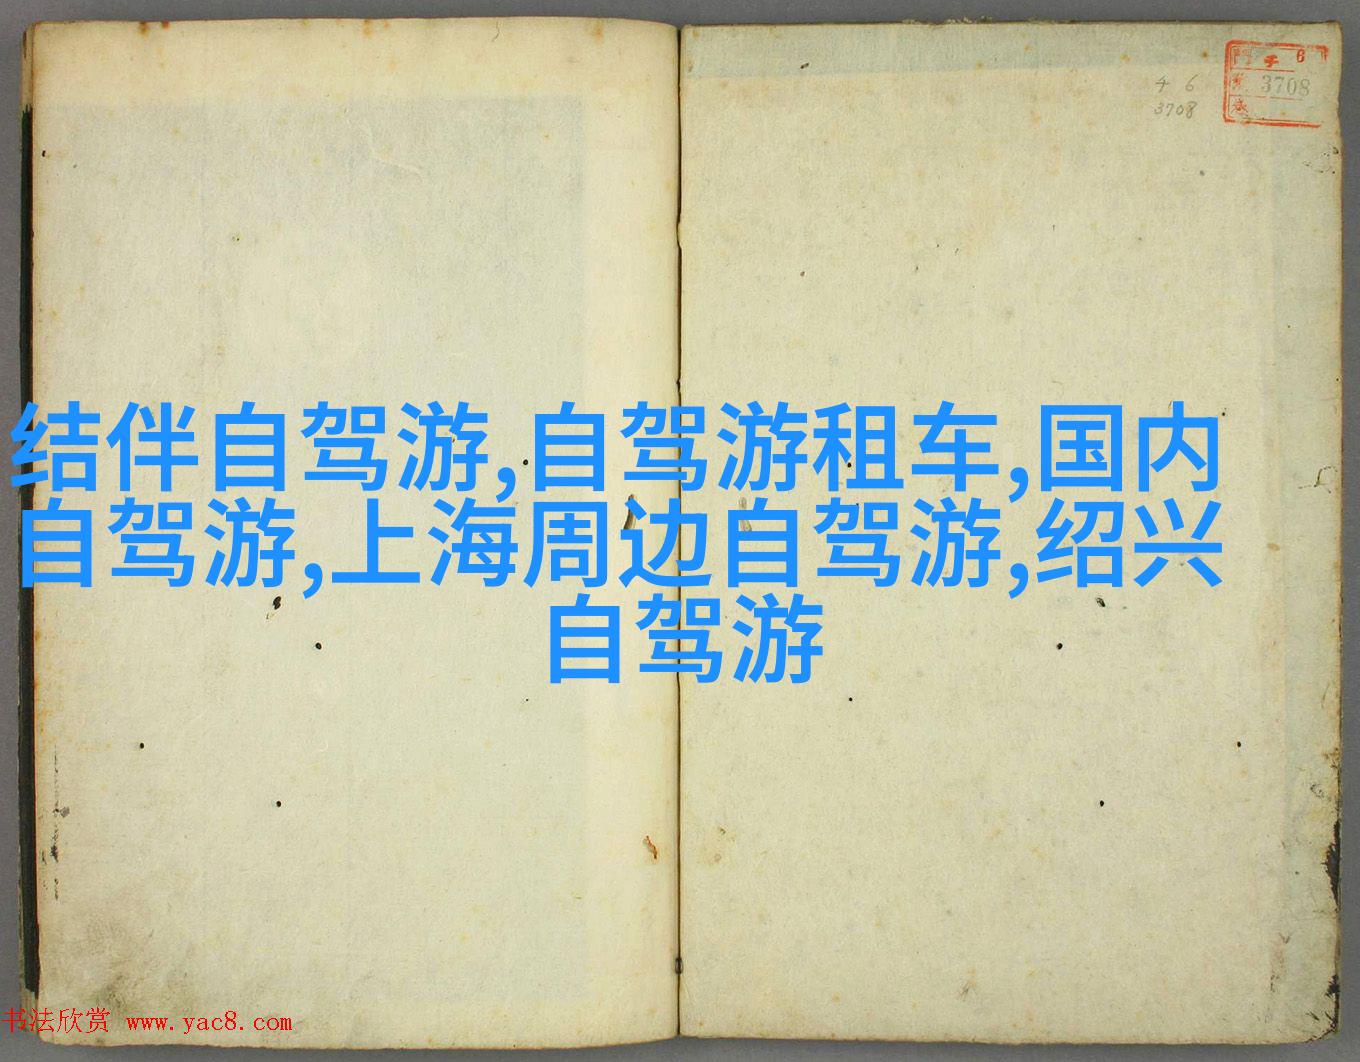 4 6
3708
6
3708
结伴自驾游,自驾游租车,国内
自驾游,上海周边自驾游,绍兴
自驾游
书法欣赏 www.yac8.com